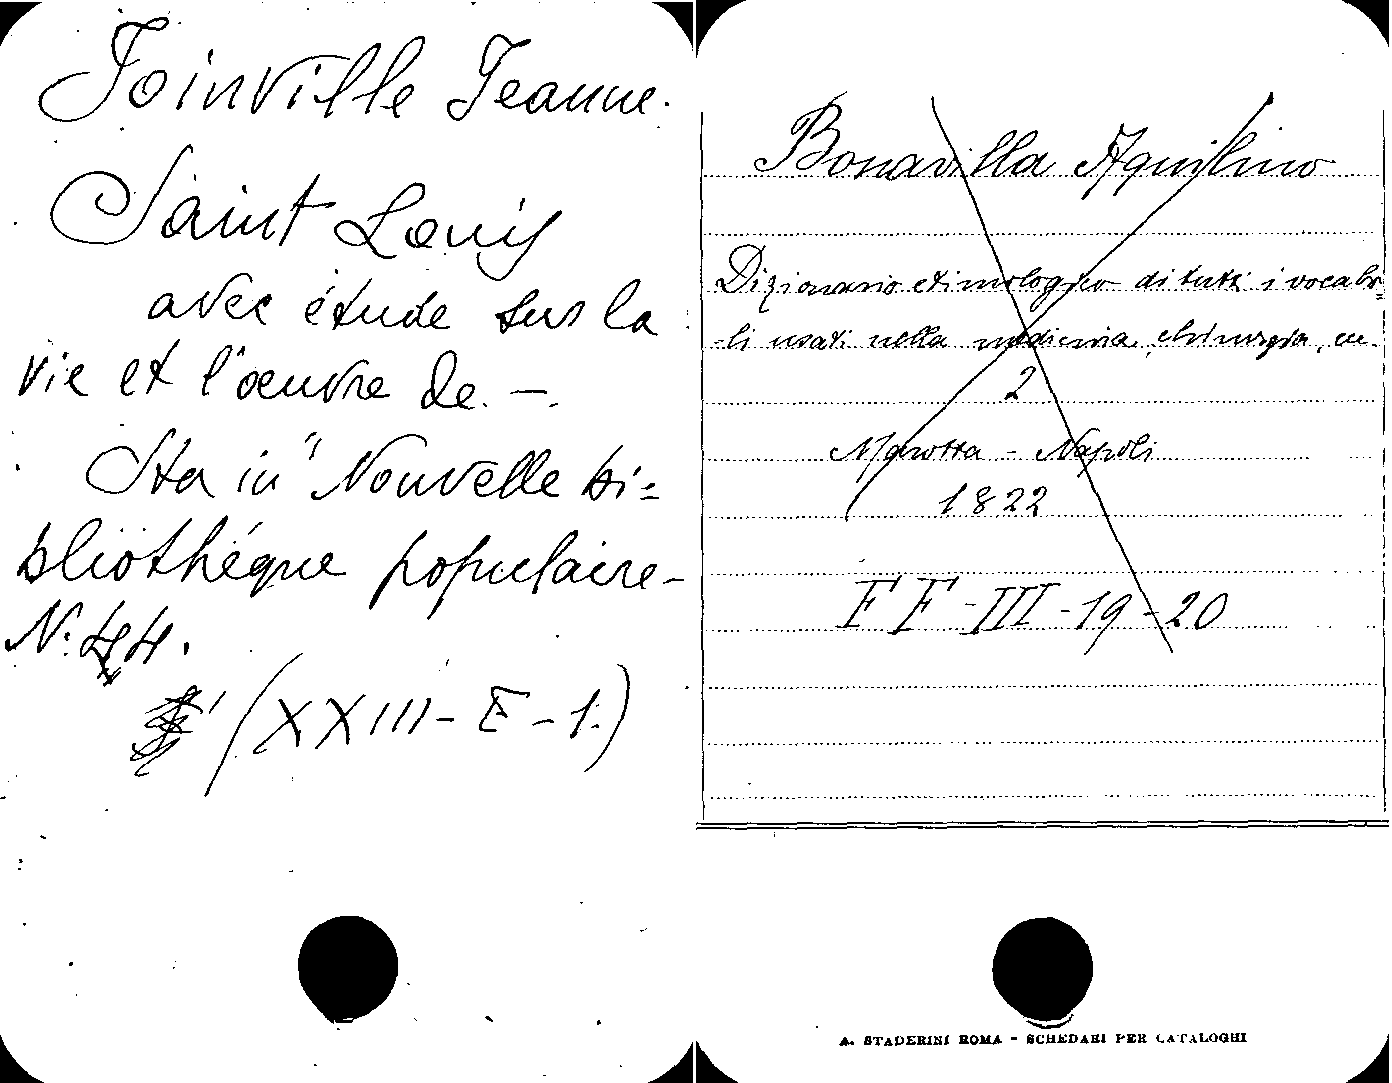 Joinville Jeanne.
Saint Louis
avec étude sur la
vie et l'oeuvre de. —.
Sta in "Nouvelle bi=
bliothéque populaire-
N. 44.
(XXIII- E - 1.)
Bonavilla Aquilino
Dizionario etimologico di tutti i vocabo=
li usati nella medicina, chirurgia, ec.
2
Marotta - Napoli
1822
FF-III-19-20
A. STADERINI ROMA - SCHEDARI PER CATALOGHI